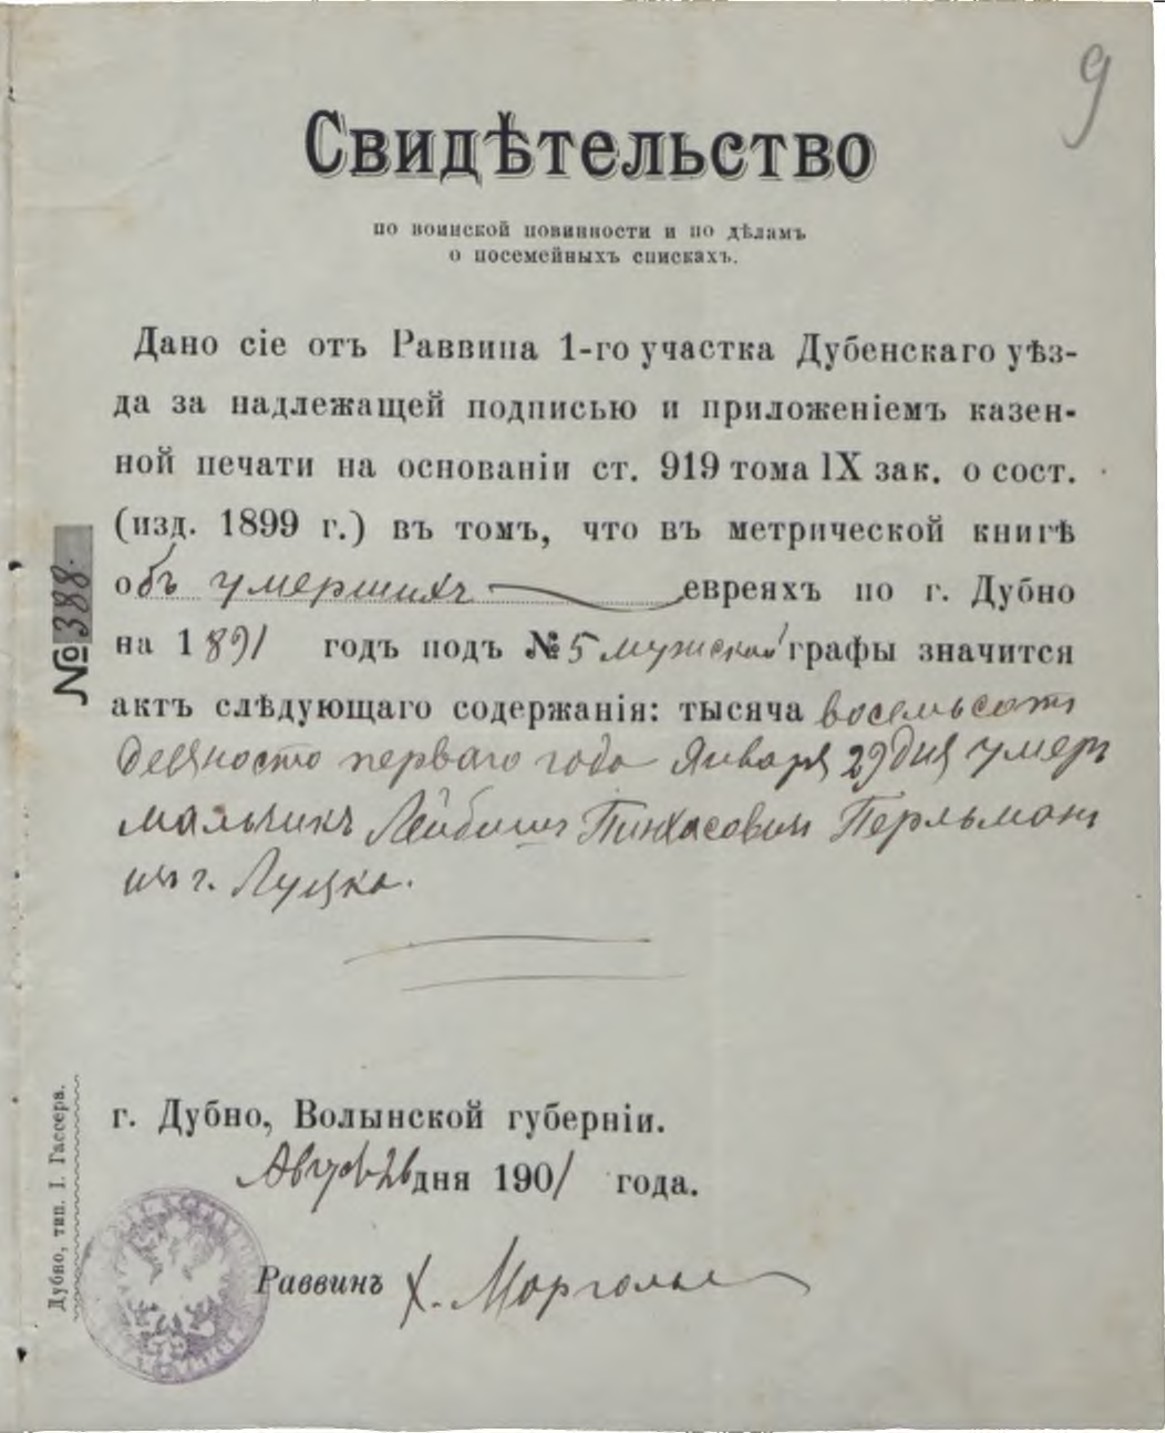 9
Свидѣтельство
по воинской повинности и по дѣламъ
о посемейныхъ спискахъ.
Дано сіе отъ Раввина 1-го участка Дубенскаго уѣз-
да за надлежащей подписью и приложеніемъ казен-
ной печати на основаніи ст. 919 тома IX зак. о сост.
(изд. 1899 г.) въ томъ, что въ метрической книгѣ
объ умершихъ евреяхъ по г. Дубно
на 1891 годъ подъ № 5 мужской графы значится
актъ слѣдующаго содержанія: тысяча восемьсотъ
девяносто перваго года Января 29 дня умеръ
мальчикъ Лейбишъ Пинхасовичъ Перльманъ
изъ г. Луцка.
№ 388.
г. Дубно, Волынской губерніи.
Август 26 дня 1901 года.
Раввинъ Х. Моргольс
Дубно, тип. І. Гассера.